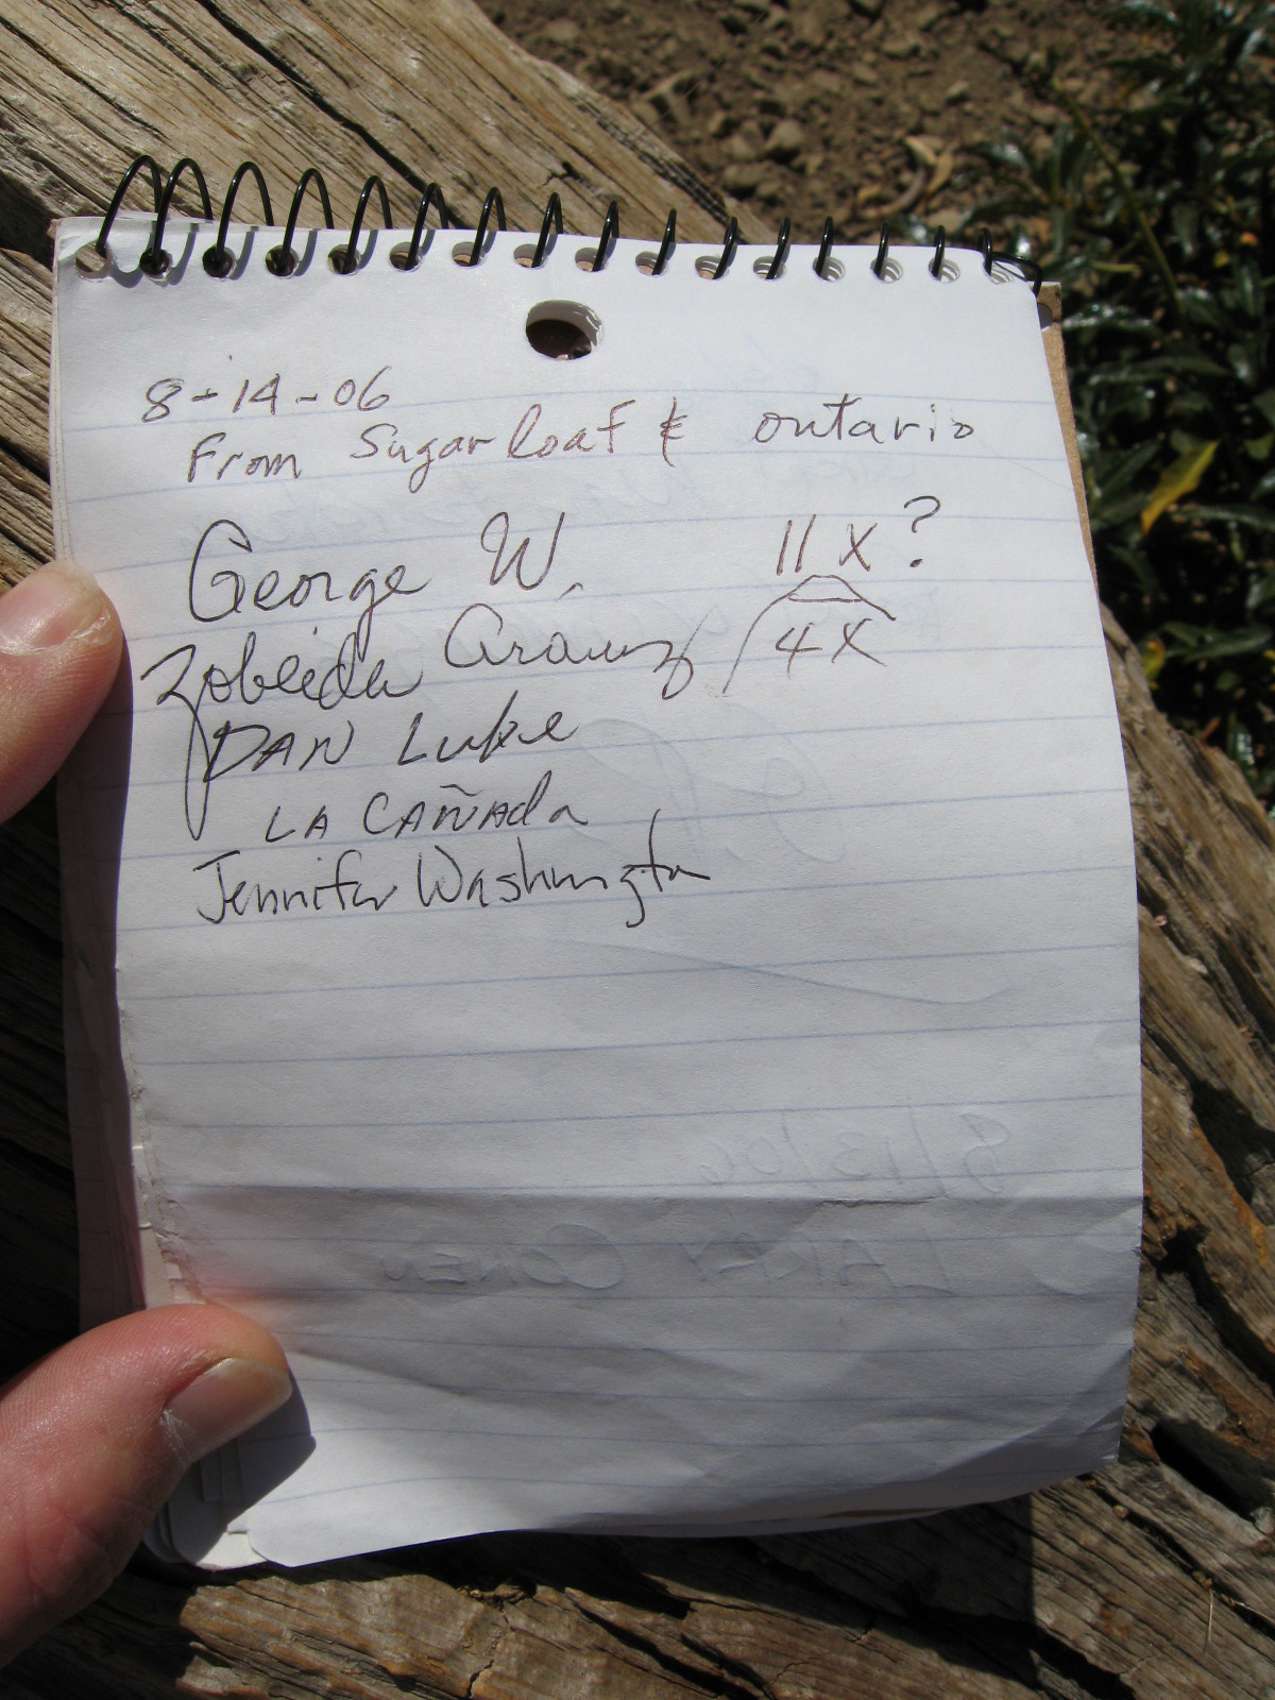 8-14-06
From Sugarloaf & ontario
George W. 11 X?
Zobeida Arauz 4X
DAN Luke
LA CAÑAda
Jennifer Washington